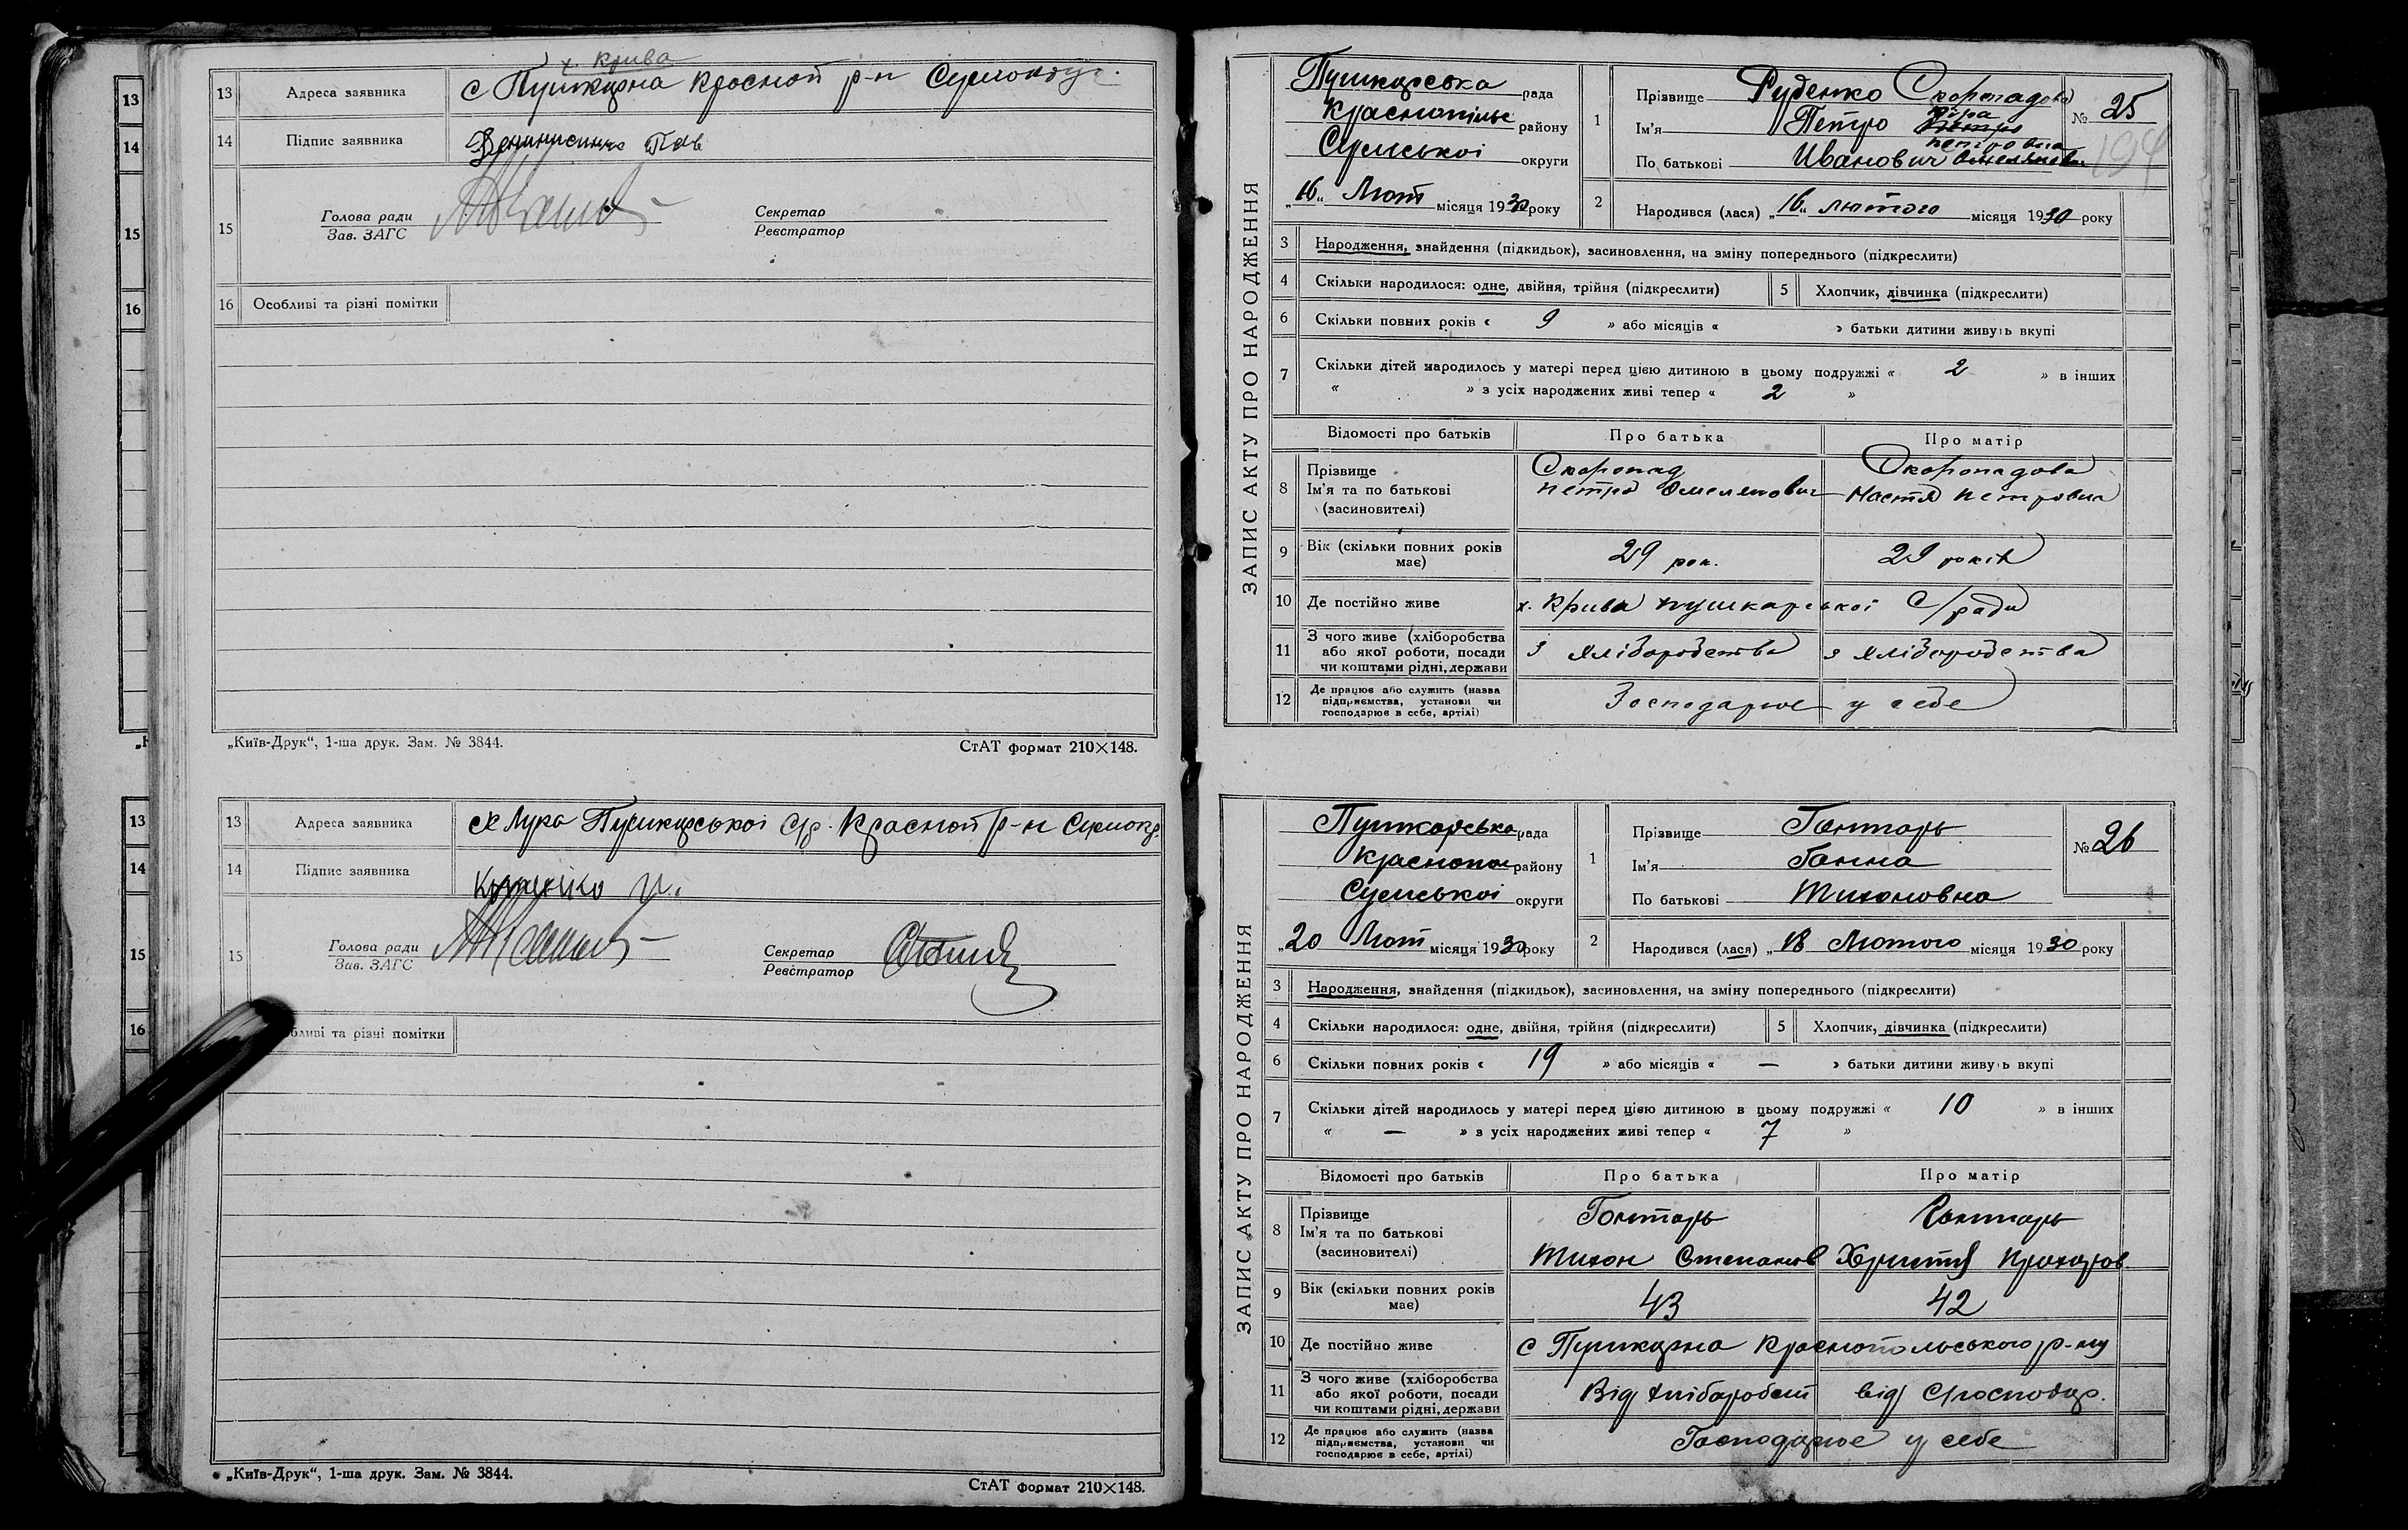 х. Крива
13 Адреса заявника с Пушкарна Красноп р-н Сумокру
14 Підпис заявника
15 Голова ради Секретар
Зав. ЗАГС Реєстратор
16 Особливі та різні помітки
„Київ-Друк“, 1-ша друк. Зам. № 3844. СтАТ формат 210×148.
13 Адреса заявника х Лука Пушкарської С/р. Красноп р-н Сумокр
14 Підпис заявника
15 Голова ради Секретар
Зав. ЗАГС Реєстратор
бливі та різні помітки
„Київ-Друк“, 1-ша друк. Зам. № 3844.
СтАТ формат 210×148.
ЗАПИС АКТУ ПРО НАРОДЖЕННЯ
Пушкарська рада
Краснопільс району
Сумської округи
„16“ Лют місяця 1930 року
1 Прізвище Руденко Скоропадова № 25
Ім'я Петро Віра Петро
По батькові Иванович Петровна Омелянович 194
2 Народився (лася) „16“ лютого місяця 1930 року
3 Народження, знайдення (підкидьок), засиновлення, на зміну попереднього (підкреслити)
4 Скільки народилося: одне, двійня, трійня (підкреслити) 5 Хлопчик, дівчинка (підкреслити)
6 Скільки повних років « 9 » або місяців « » батьки дитини живуть вкупі
7 Скільки дітей народилось у матері перед цією дитиною в цьому подружжі « 2 » в інших
« » з усіх народжених живі тепер « 2 »
Відомості про батьків Про батька Про матір
8 Прізвище Скоропад Скоропадова
Ім'я та по батькові Петро Омелянович Настя Петровна
(засиновителі)
9 Вік (скільки повних років має) 29 рок. 29 років
10 Де постійно живе х. Крива Пушкарської С/ради
11 З чого живе (хліборобства або якої роботи, посади чи коштами рідні, держави з хліборобства з хліборобства
12 Де працює або служить (назва підприємства, установи чи господарює в себе, артілі) Господарює у себе
ЗАПИС АКТУ ПРО НАРОДЖЕННЯ
Пушкарська рада
Краснопол району
Сумської округи
„20 Лют місяця 1930 року
1 Прізвище Гонтарь № 26
Ім'я Ганна
По батькові Тихоновна
2 Народився (лася) „18 Лютого місяця 1930 року
3 Народження, знайдення (підкидьок), засиновлення, на зміну попереднього (підкреслити)
4 Скільки народилося: одне, двійня, трійня (підкреслити) 5 Хлопчик, дівчинка (підкреслити)
6 Скільки повних років « 19 » або місяців « — » батьки дитини живуть вкупі
7 Скільки дітей народилось у матері перед цією дитиною в цьому подружжі « 10 » в інших
« — » з усіх народжених живі тепер « 7 »
Відомості про батьків Про батька Про матір
8 Прізвище Гонтарь Гонтарь
Ім'я та по батькові
(засиновителі) Тихон Степанов Христя Прохоров.
9 Вік (скільки повних років має) 43 42
10 Де постійно живе с Пушкарна Краснопольського р-ну
11 З чого живе (хліборобства або якої роботи, посади чи коштами рідні, держави Від хліборобст від С/господар.
12 Де працює або служить (назва підприємства, установи чи господарює в себе, артілі) Господарює у себе
13
14
15
16
13
14
15
16